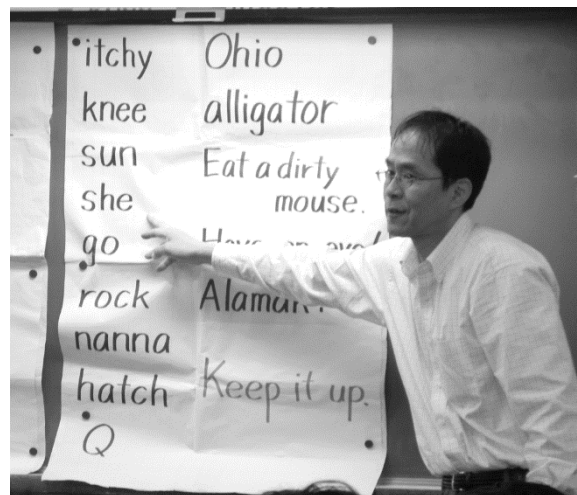 itchy
knee
sun
she
go
rock
nanna
hatch
Q
Ohio
alligator
Eat a dirty
mouse.
Keep it up.